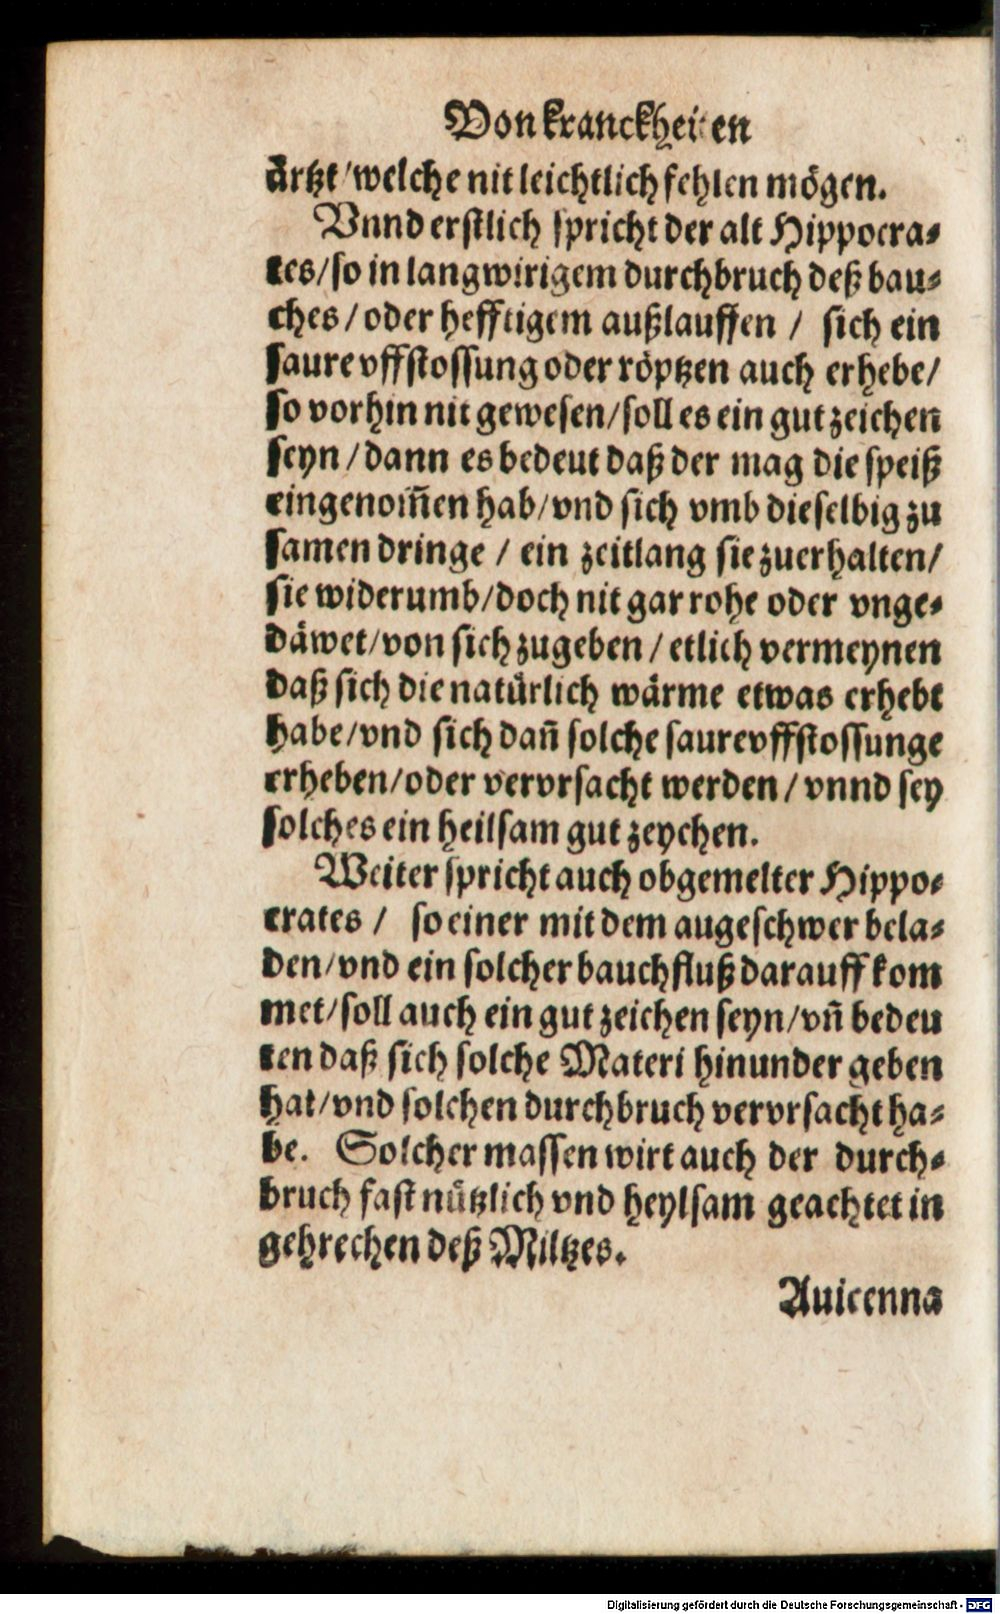 Von kranckheiten
ärtzt / welche nit leichtlich fehlen mögen.
Vnnd erstlich spricht der alt Hippocra⸗
tes / so in langwirigem durchbruch deß bau⸗
ches / oder hefftigem außlauffen / sich ein
saure vffstossung oder röptzen auch erhebe /
so vorhin nit gewesen / soll es ein gut zeichen
seyn / dann es bedeut daß der mag die speiß
eingenom̃en hab / vnd sich vmb dieselbig zu
samen dringe / ein zeitlang sie zuerhalten /
sie widerumb / doch nit gar rohe oder vnge⸗
däwet / von sich zugeben / etlich vermeynen
daß sich die natürlich wärme etwas erhebt
habe / vnd sich dañ solche saure vffstossunge
erheben / oder vervrsacht werden / vnnd sey
solches ein heilsam gut zeychen.
Weiter spricht auch obgemelter Hippo⸗
crates / so einer mit dem augeschwer bela⸗
den / vnd ein solcher bauchfluß darauff kom
met / soll auch ein gut zeichen seyn / vñ bedeu
ten daß sich solche Materi hinunder geben
hat / vnd solchen durchbruch vervrsacht ha⸗
be. Solcher massen wirt auch der durch⸗
bruch fast nützlich vnd heylsam geachtet in
gebrechen deß Miltzes.
Auicenna
Digitalisierung gefördert durch die Deutsche Forschungsgemeinschaft - DFG